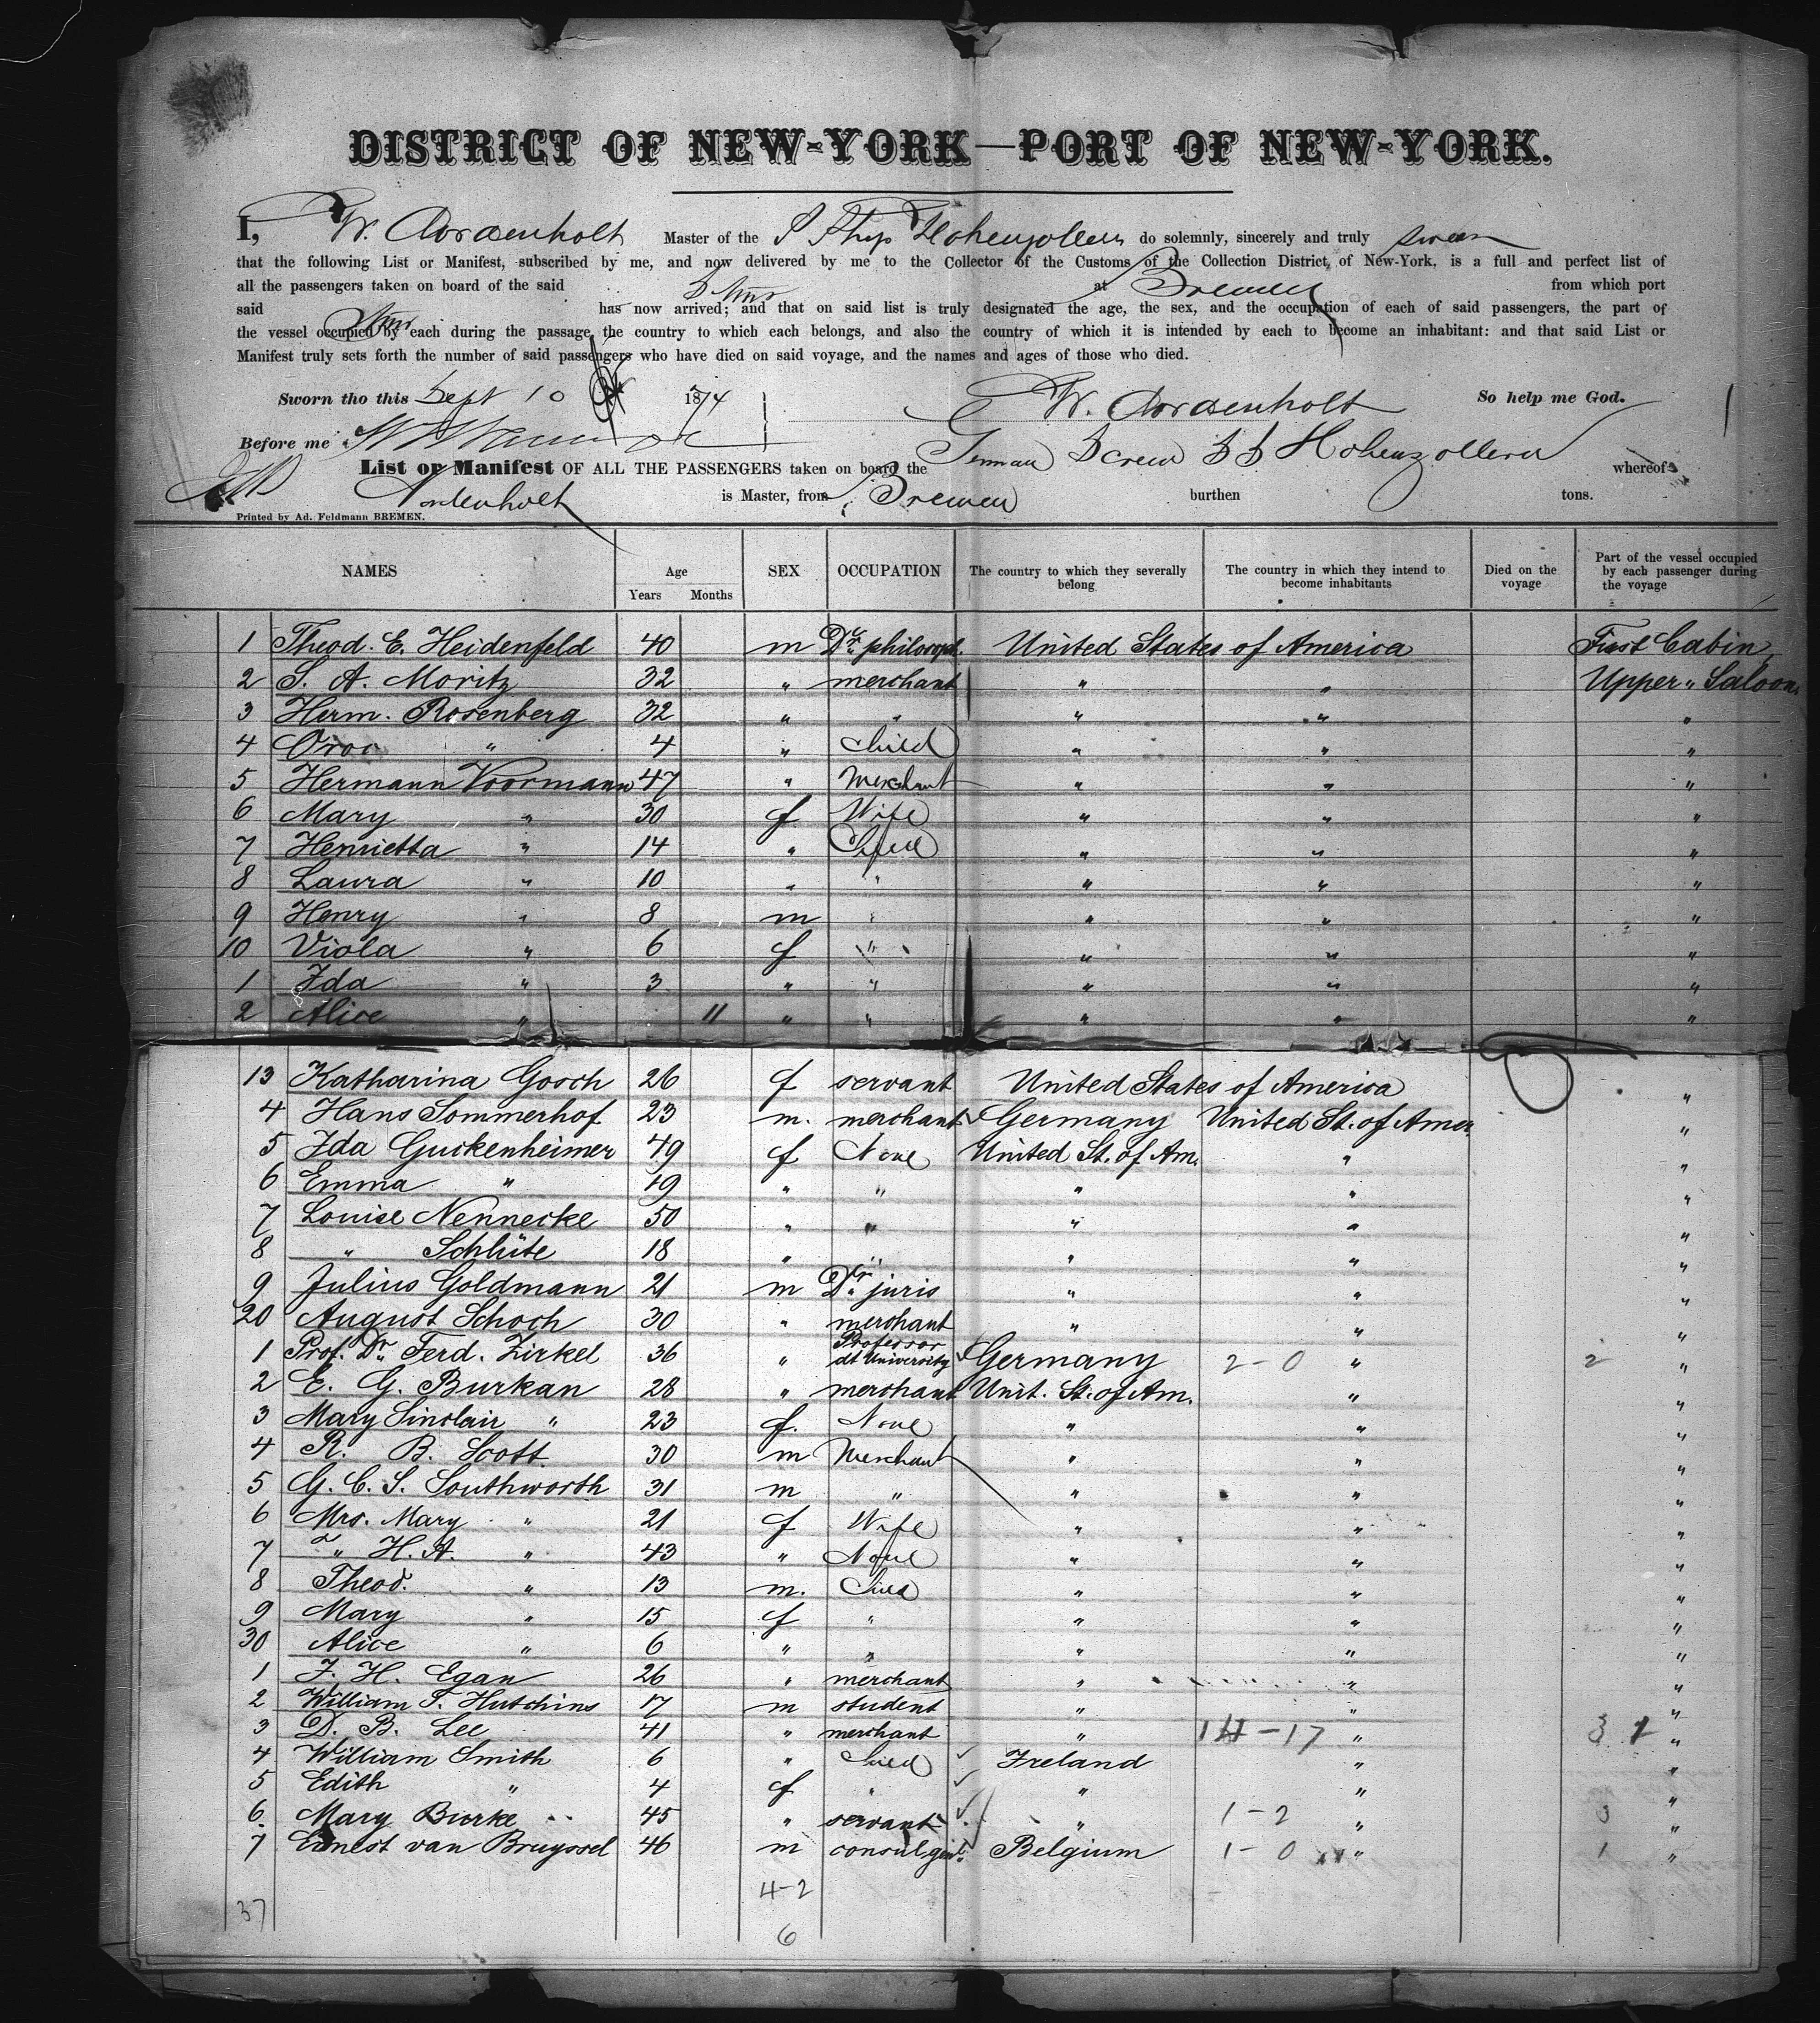 DISTRICT OF NEW-YORK—PORT OF NEW-YORK.
I, W. Master of the S Ship Hohenzollern do solemnly, sincerely and truly swear
that the following List or Manifest, subscribed by me, and now delivered by me to the Collector of the Customs of the Collection District of New-York, is a full and perfect list of
all the passengers taken on board of the said Ship at Bremen from which port
said Ship has now arrived; and that on said list is truly designated the age, the sex, and the occupation of each of said passengers, the part of
the vessel occupied by each during the passage, the country to which each belongs, and also the country of which it is intended by each to become an inhabitant: and that said List or
Manifest truly sets forth the number of said passengers who have died on said voyage, and the names and ages of those who died.
Sworn tho this Sept 10 1874 W. So help me God.
Before me
List or Manifest OF ALL THE PASSENGERS taken on board the German Screw SS Hohenzollern whereof
is Master, from Bremen burthen tons.
Printed by Ad. Feldmann BREMEN.
NAMES Age Years Months SEX OCCUPATION The country to which they severally belong The country in which they intend to become inhabitants Died on the voyage Part of the vessel occupied by each passenger during the voyage
1 Theod. E. Heidenfeld 40 m Dr. philosoph. United States of America First Cabin
2 S. A. Moritz 32 " merchant " " Upper " Saloon
3 Herm. Rosenberg 32 " " " " "
4 " 4 " Child " " "
5 Hermann Voormann 47 " Merchant " " "
6 Mary " 30 f. Wife " " "
7 Henrietta " 14 " Child " " "
8 Laura " 10 " " " " "
9 Henry " 8 m " " " "
10 Viola " 6 f " " " "
1 Ida " 3 " " " " "
2 Alice " 11 " " " " "
13 Katharina Gosch 26 f servant United States of America "
4 Hans Sommerhof 23 m. merchant Germany United St. of Amer. "
5 Ida Guckenheimer 49 f None United St. of Am. " "
6 Emma " 19 " " " " "
7 Louise Nennecke 50 " " " " "
8 " Schlüte 18 " " " " "
9 Julius Goldmann 21 m Dr. juris " " "
20 August Schoch 30 " merchant " " "
1 Prof. Dr. Ferd. Zirkel 36 " Professor dt University Germany 2-0 " 2 "
2 E. G. Burkan 28 " merchant Unit. St. of Am. " "
3 Mary Sinclair " 23 f. None " " "
4 R. B. Scott 30 m Merchant " " "
5 G. C. S. Southworth 31 m " " " "
6 Mrs. Mary " 21 f Wife " " "
7 " H. A. " 43 " None " " "
8 Theod. " 13 m. Child " " "
9 Mary " 15 f " " " "
30 Alice " 6 " " " " "
1 J. H. Egan 26 " merchant " " "
2 William T. Hutchins 17 m student " " "
3 D. B. Lee 41 " merchant " -17 " "
4 William Smith 6 " Child Ireland " "
5 Edith " 4 f " " " "
6. Mary Burke 45 " servant " 1-2 " 3 "
7 Ernest van Bruyssel 46 m consul genl. Belgium 1-0 " 1 "
4-2
37
6